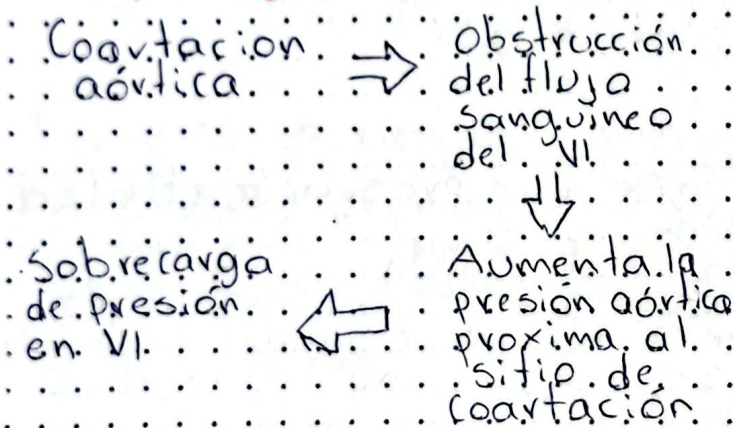 Coartacion
aórtica
Obstrucción
del flujo
sanguineo
del VI
Aumenta la
presión aórtica
proxima al
sitio de
coartación
Sobrecarga
de presión
en VI